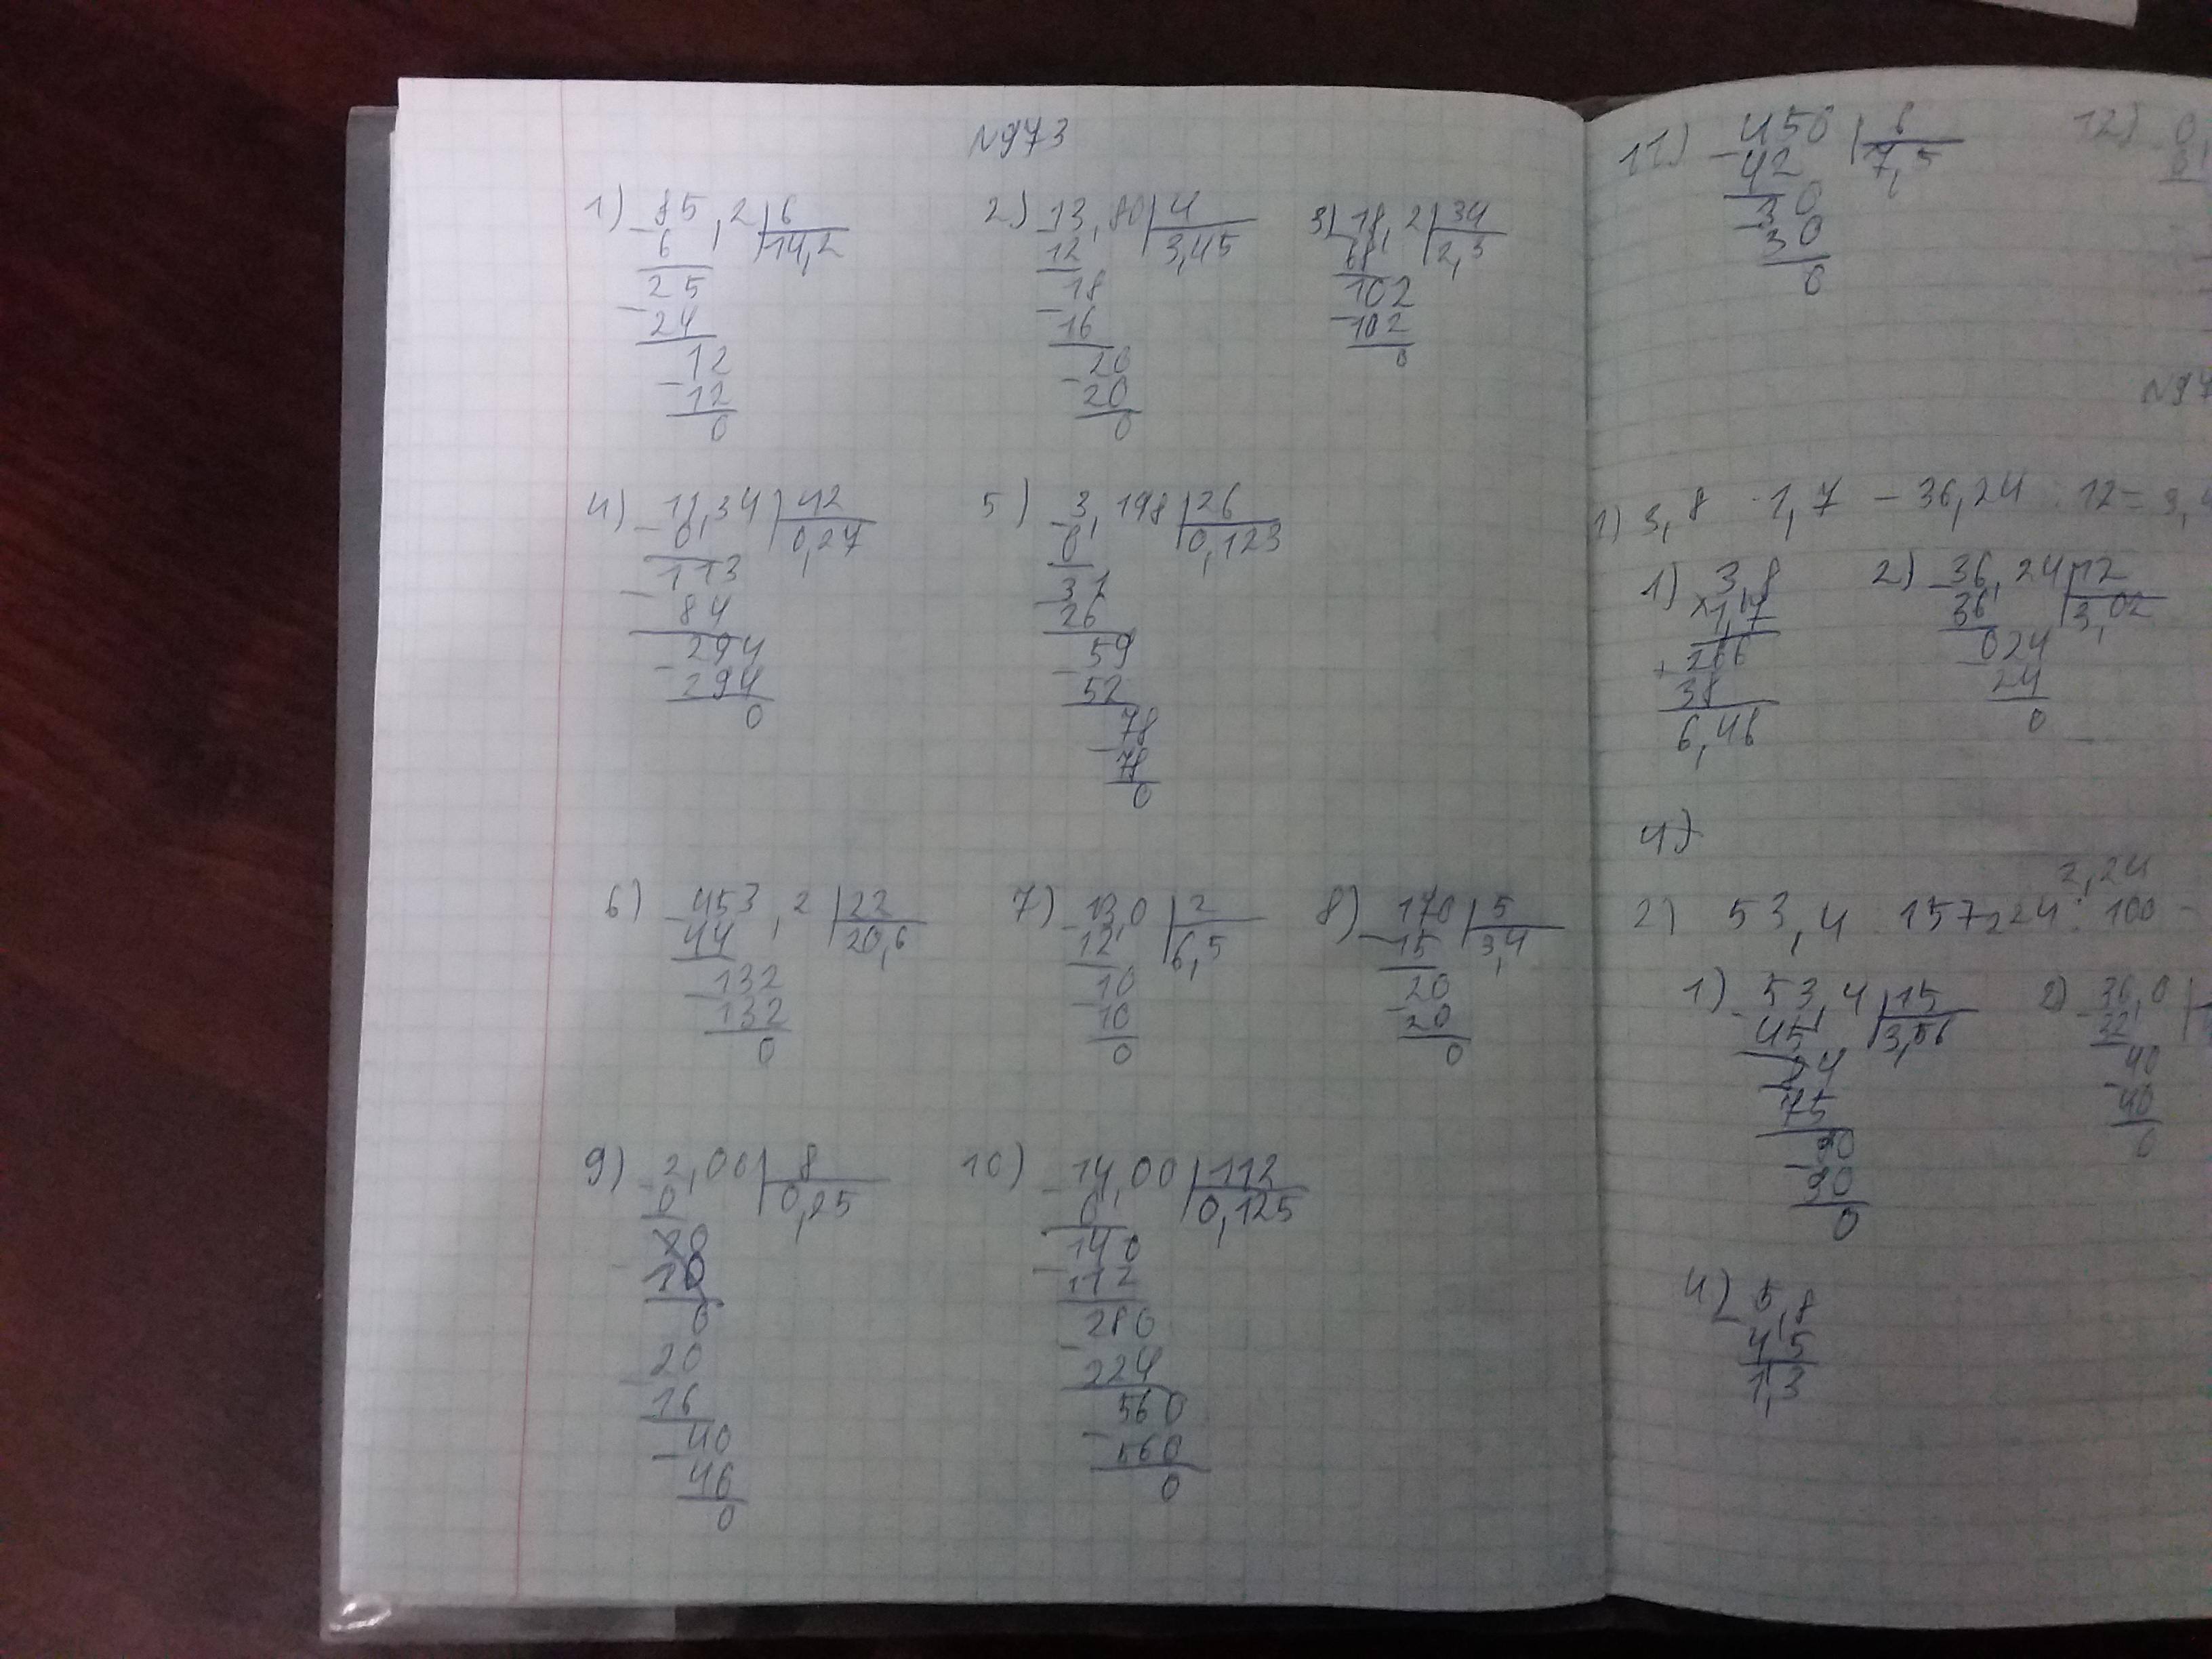 №973
1) 85,2 | 6
6 | 14,2
25
24
12
12
0
2) 13,80 | 4
12 | 3,45
18
16
20
20
0
3) 78,2 | 34
68 | 2,3
102
102
0
4) 11,34 | 42
0 | 0,27
113
84
294
294
0
5) 3,198 | 26
0 | 0,123
31
26
59
52
78
78
0
6) 453,2 | 22
44 | 20,6
132
132
0
7) 13,0 | 2
12 | 6,5
10
10
0
8) 170 | 5
15 | 3,4
20
20
0
9) 2,00 | 8
0 | 0,25
0
20
16
40
40
0
10) 14,00 | 112
0 | 0,125
140
112
280
224
560
560
0
11) 450 | 6
42 | 7,5
30
30
0
12) 0
№97
1) 3,8 · 1,7 - 36,24 : 12 = 3,
1) 3,8
× 1,7
266
+ 38
6,46
2) 36,24 | 12
36 | 3,02
024
24
0
4)
2,24
2) 53,4 : 15 224 : 100 -
1) 53,4 | 15
45 | 3,56
84
75
90
90
0
2) 36,0
32
40
40
0
4) 5,8
4,5
1,3